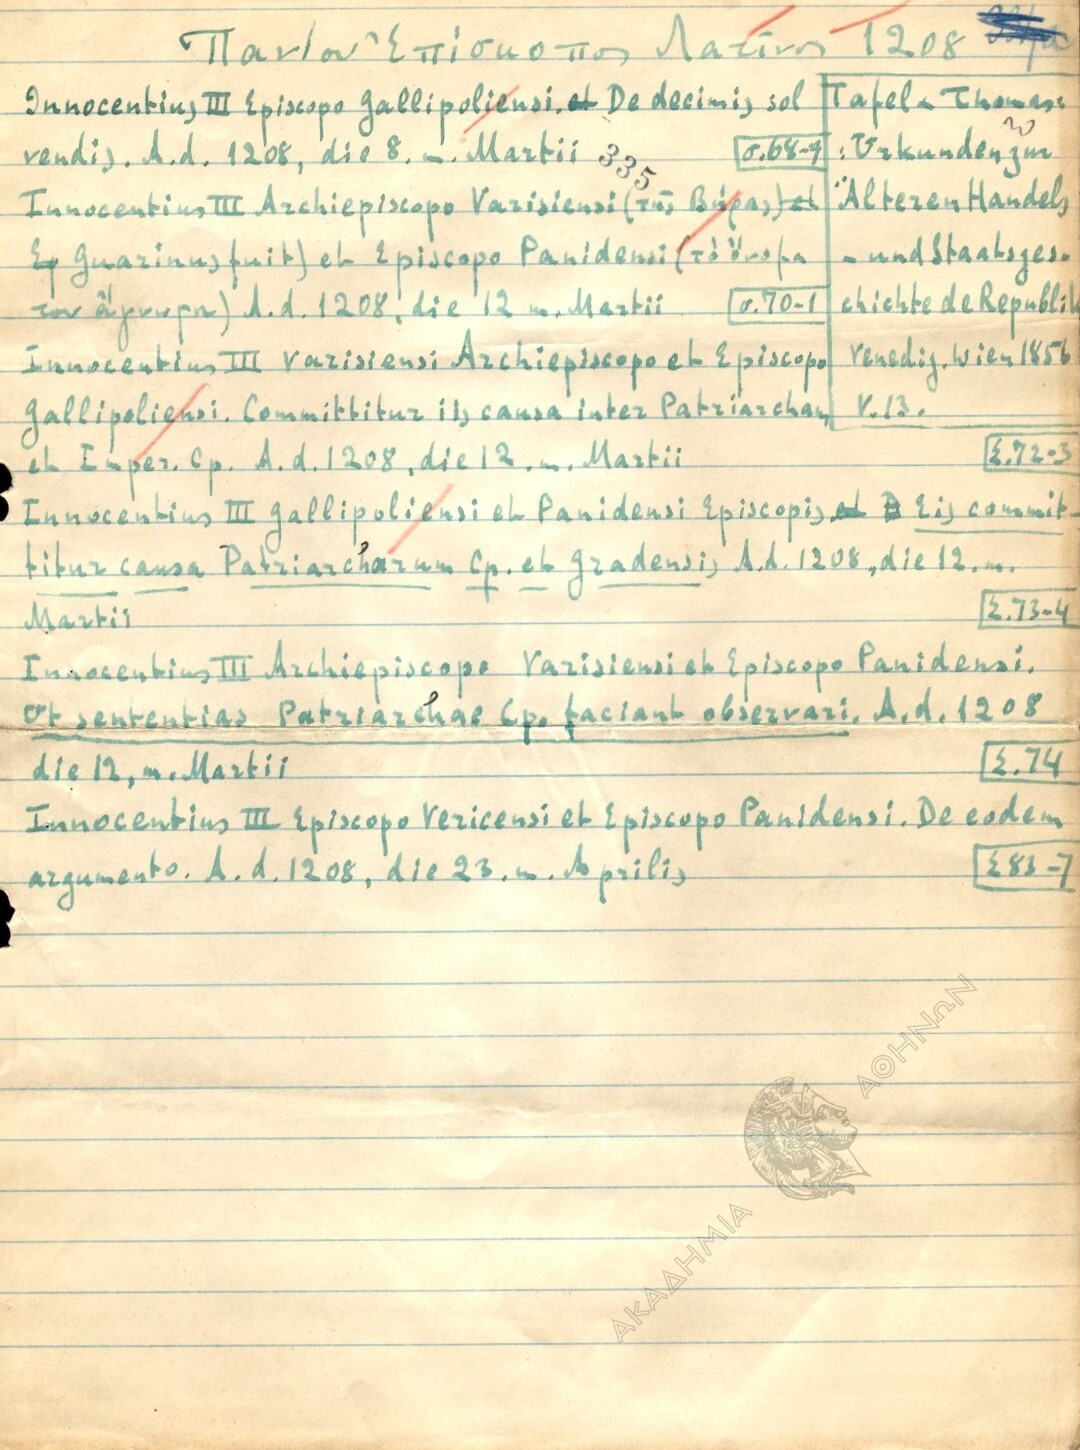 Πανίον Ἐπίσκοπος Λατῖνος 1208
Innocentius III Episcopo Gallipoliensi. et De decimis sol
vendis. A.d. 1208, die 8. m. Martii σ.68-9
335
Innocentius III Archiepiscopo Varisiensi (τῆς Βήρας) et
Guarinus fuit) et Episcopo Panidensi (τὸ ὄνομα
του ἄγνωστον) A.d. 1208, die 12 m. Martii σ.70-1
Innocentius III Varisiensi Archiepiscopo et Episcopo
Gallipoliensi. Committitur iis causa inter Patriarcham
et Imper. Cp. A.d. 1208, die 12. m. Martii Σ.72-3
Innocentius III Gallipoliensi et Panidensi Episcopis et B Eis commit-
titur causa Patriarcharum Cp. et Gradensis A.d. 1208, die 12. m.
Martii Σ.73-4
Innocentius III Archiepiscopo Varisiensi et Episcopo Panidensi.
Ut sententias Patriarchae Cp. faciant observari. A.d. 1208
die 12, m. Martii Σ.74
Innocentius III Episcopo Vericensi et Episcopo Panidensi. De eodem
argumento. A.d. 1208, die 23. m. Aprilis Σ83-7
Tafel - Thomas
: Urkunden zur
Älteren Handels
- und Staatsges-
chichte de Republik
Venedig. Wien 1856
V.13.
ΑΚΑΔΗΜΙΑ ΑΘΗΝΩΝ